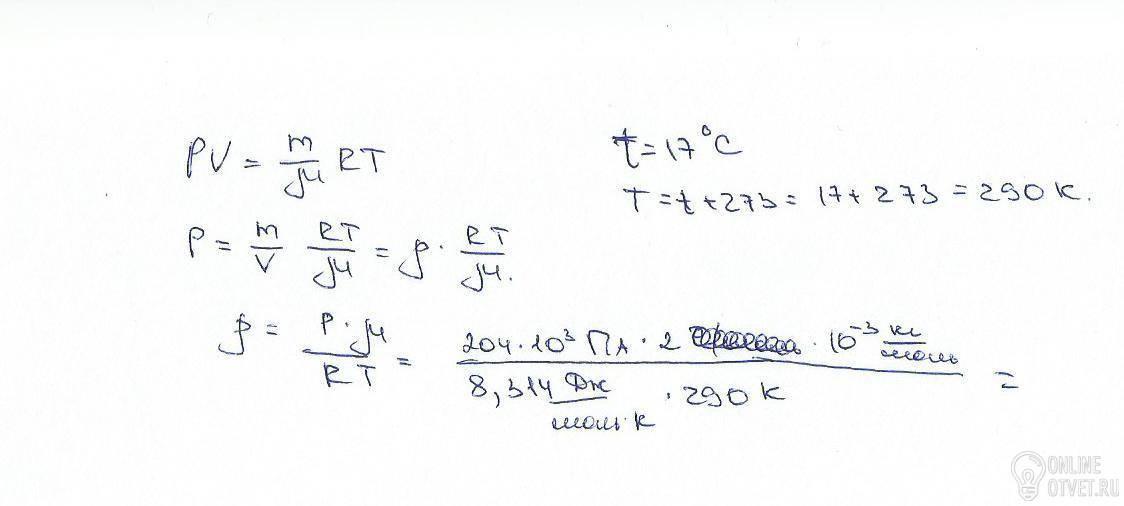 PV = m/μ RT
t = 17°C
T = t + 273 = 17 + 273 = 290 К.
P = m/V RT/μ = ρ · RT/μ.
ρ = P · μ / RT = 204 · 10³ Па · 2 · 10⁻³ кг/моль / 8,314 Дж/моль·К · 290 К =
ONLINE
OTVET.RU